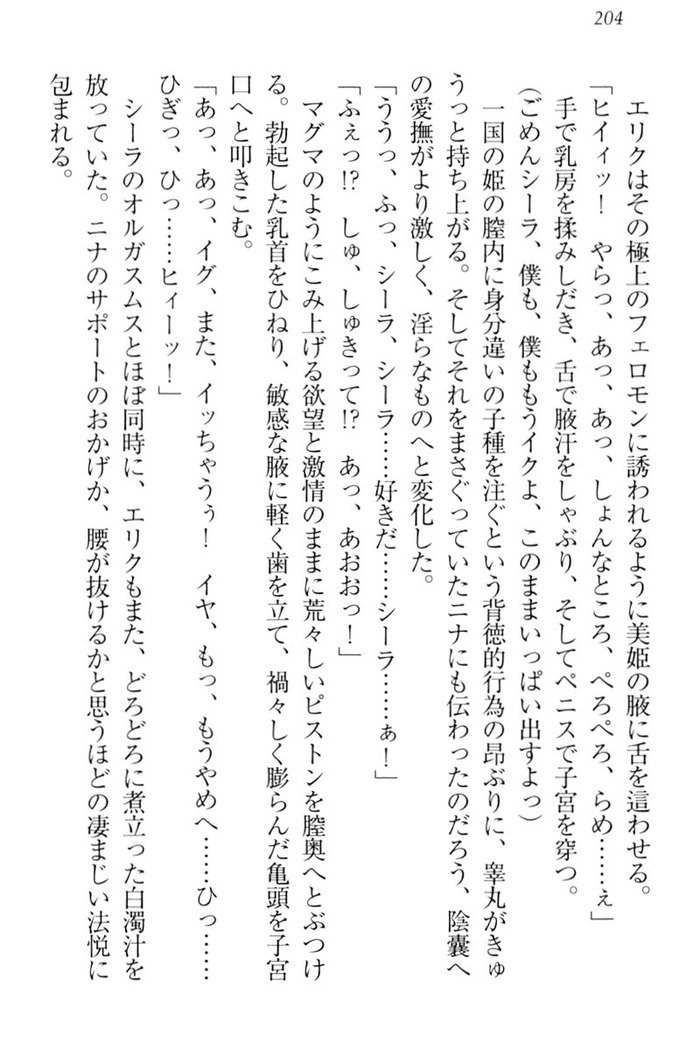 204
エリクはその極上のフェロモンに誘われるように美姫の腋に舌を這わせる。
「ヒイィッ！　やらっ、あっ、あっ、しょんなところ、ぺろぺろ、らめ……ぇ」
手で乳房を揉みしだき、舌で腋汗をしゃぶり、そしてペニスで子宮を穿つ。
(ごめんシーラ、僕も、僕ももうイクよ、このままいっぱい出すよっ)
一国の姫の膣内に身分違いの子種を注ぐという背徳的行為の昂ぶりに、睾丸がきゅ
うっと持ち上がる。そしてそれをまさぐっていたニナにも伝わったのだろう、陰嚢へ
の愛撫がより激しく、淫らなものへと変化した。
「ううっ、ふっ、シーラ、シーラ……好きだ……シーラ……ぁ！」
「ふぇっ!?　しゅ、しゅきって!?　あっ、あおおっ！」
マグマのようにこみ上げる欲望と激情のままに荒々しいピストンを膣奥へとぶつけ
る。勃起した乳首をひねり、敏感な腋に軽く歯を立て、禍々しく膨らんだ亀頭を子宮
口へと叩きこむ。
「あっ、あっ、イグ、また、イッちゃうぅ！　イヤ、もっ、もうやめへ……ひっ……
ひぎっ、ひっ……ヒィーッ！」
シーラのオルガスムスとほぼ同時に、エリクもまた、どろどろに煮立った白濁汁を
放っていた。ニナのサポートのおかげか、腰が抜けるかと思うほどの凄まじい法悦に
包まれる。